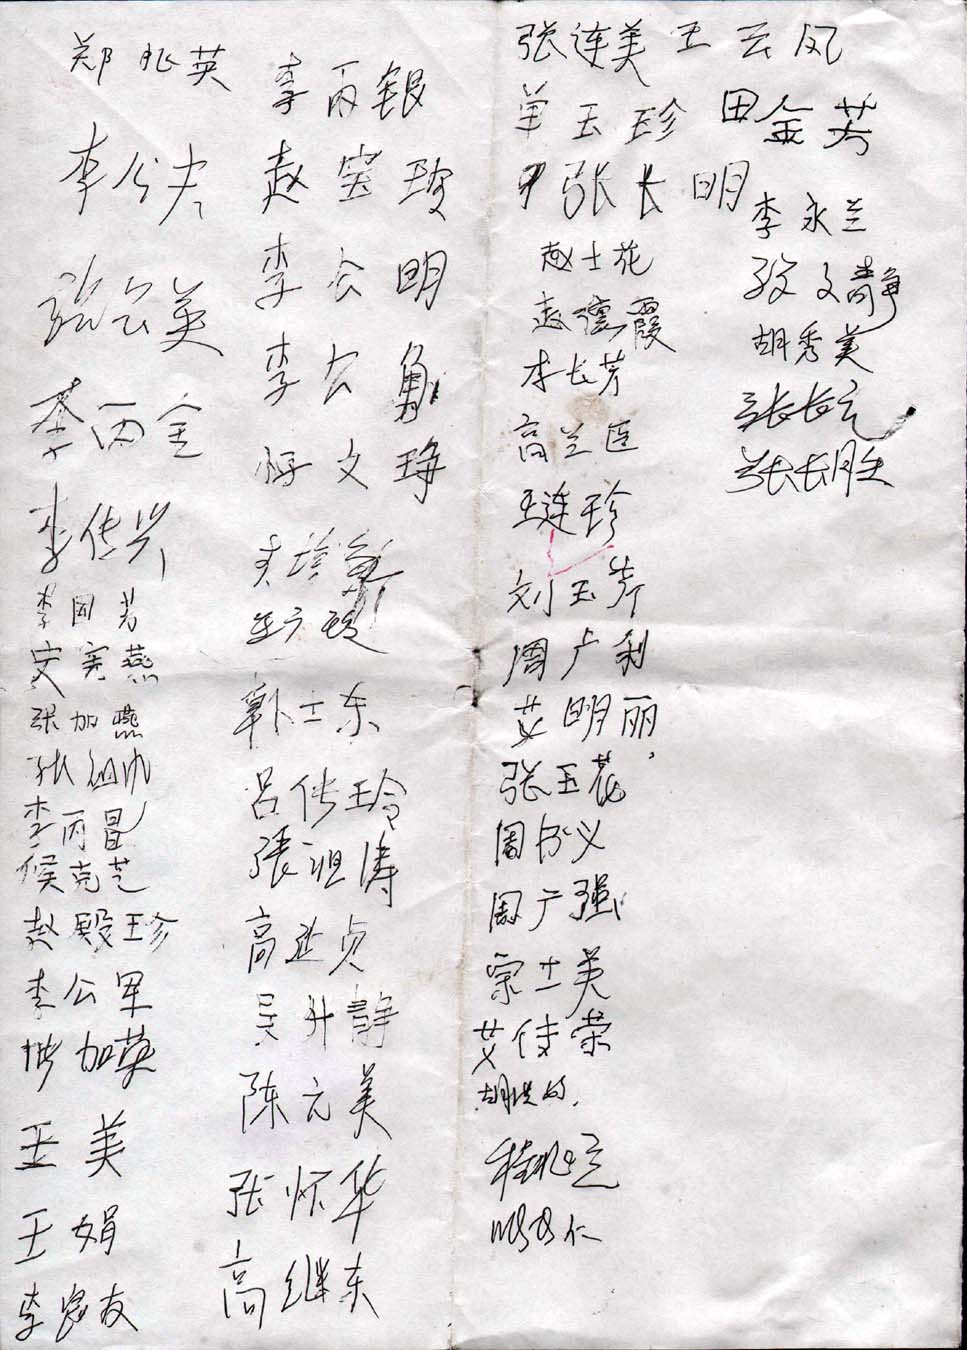 郑兆英
李公夫
张公英
李丙全
李传兴
李同芳
安宪燕
张加燕
张祖
李丙昆
侯克芝
赵殿珍
李公军
加英
王美
王娟
李家友
李丙银
赵宝玲
李公明
李公勇
文琦
方玲
郭士东
吕传玲
張祖涛
高延贞
吴升静
陈元美
张怀华
高继东
张连美
单玉珍
张长明
赵士花
赵德霞
李长芳
高兰臣
王连珍
刘玉芹
周广利
艾明丽
张玉花
周书义
周广强
宗士美
艾传荣
程
仁
王云凤
田金芳
李永兰
文静
胡秀美
张长元
张长胜